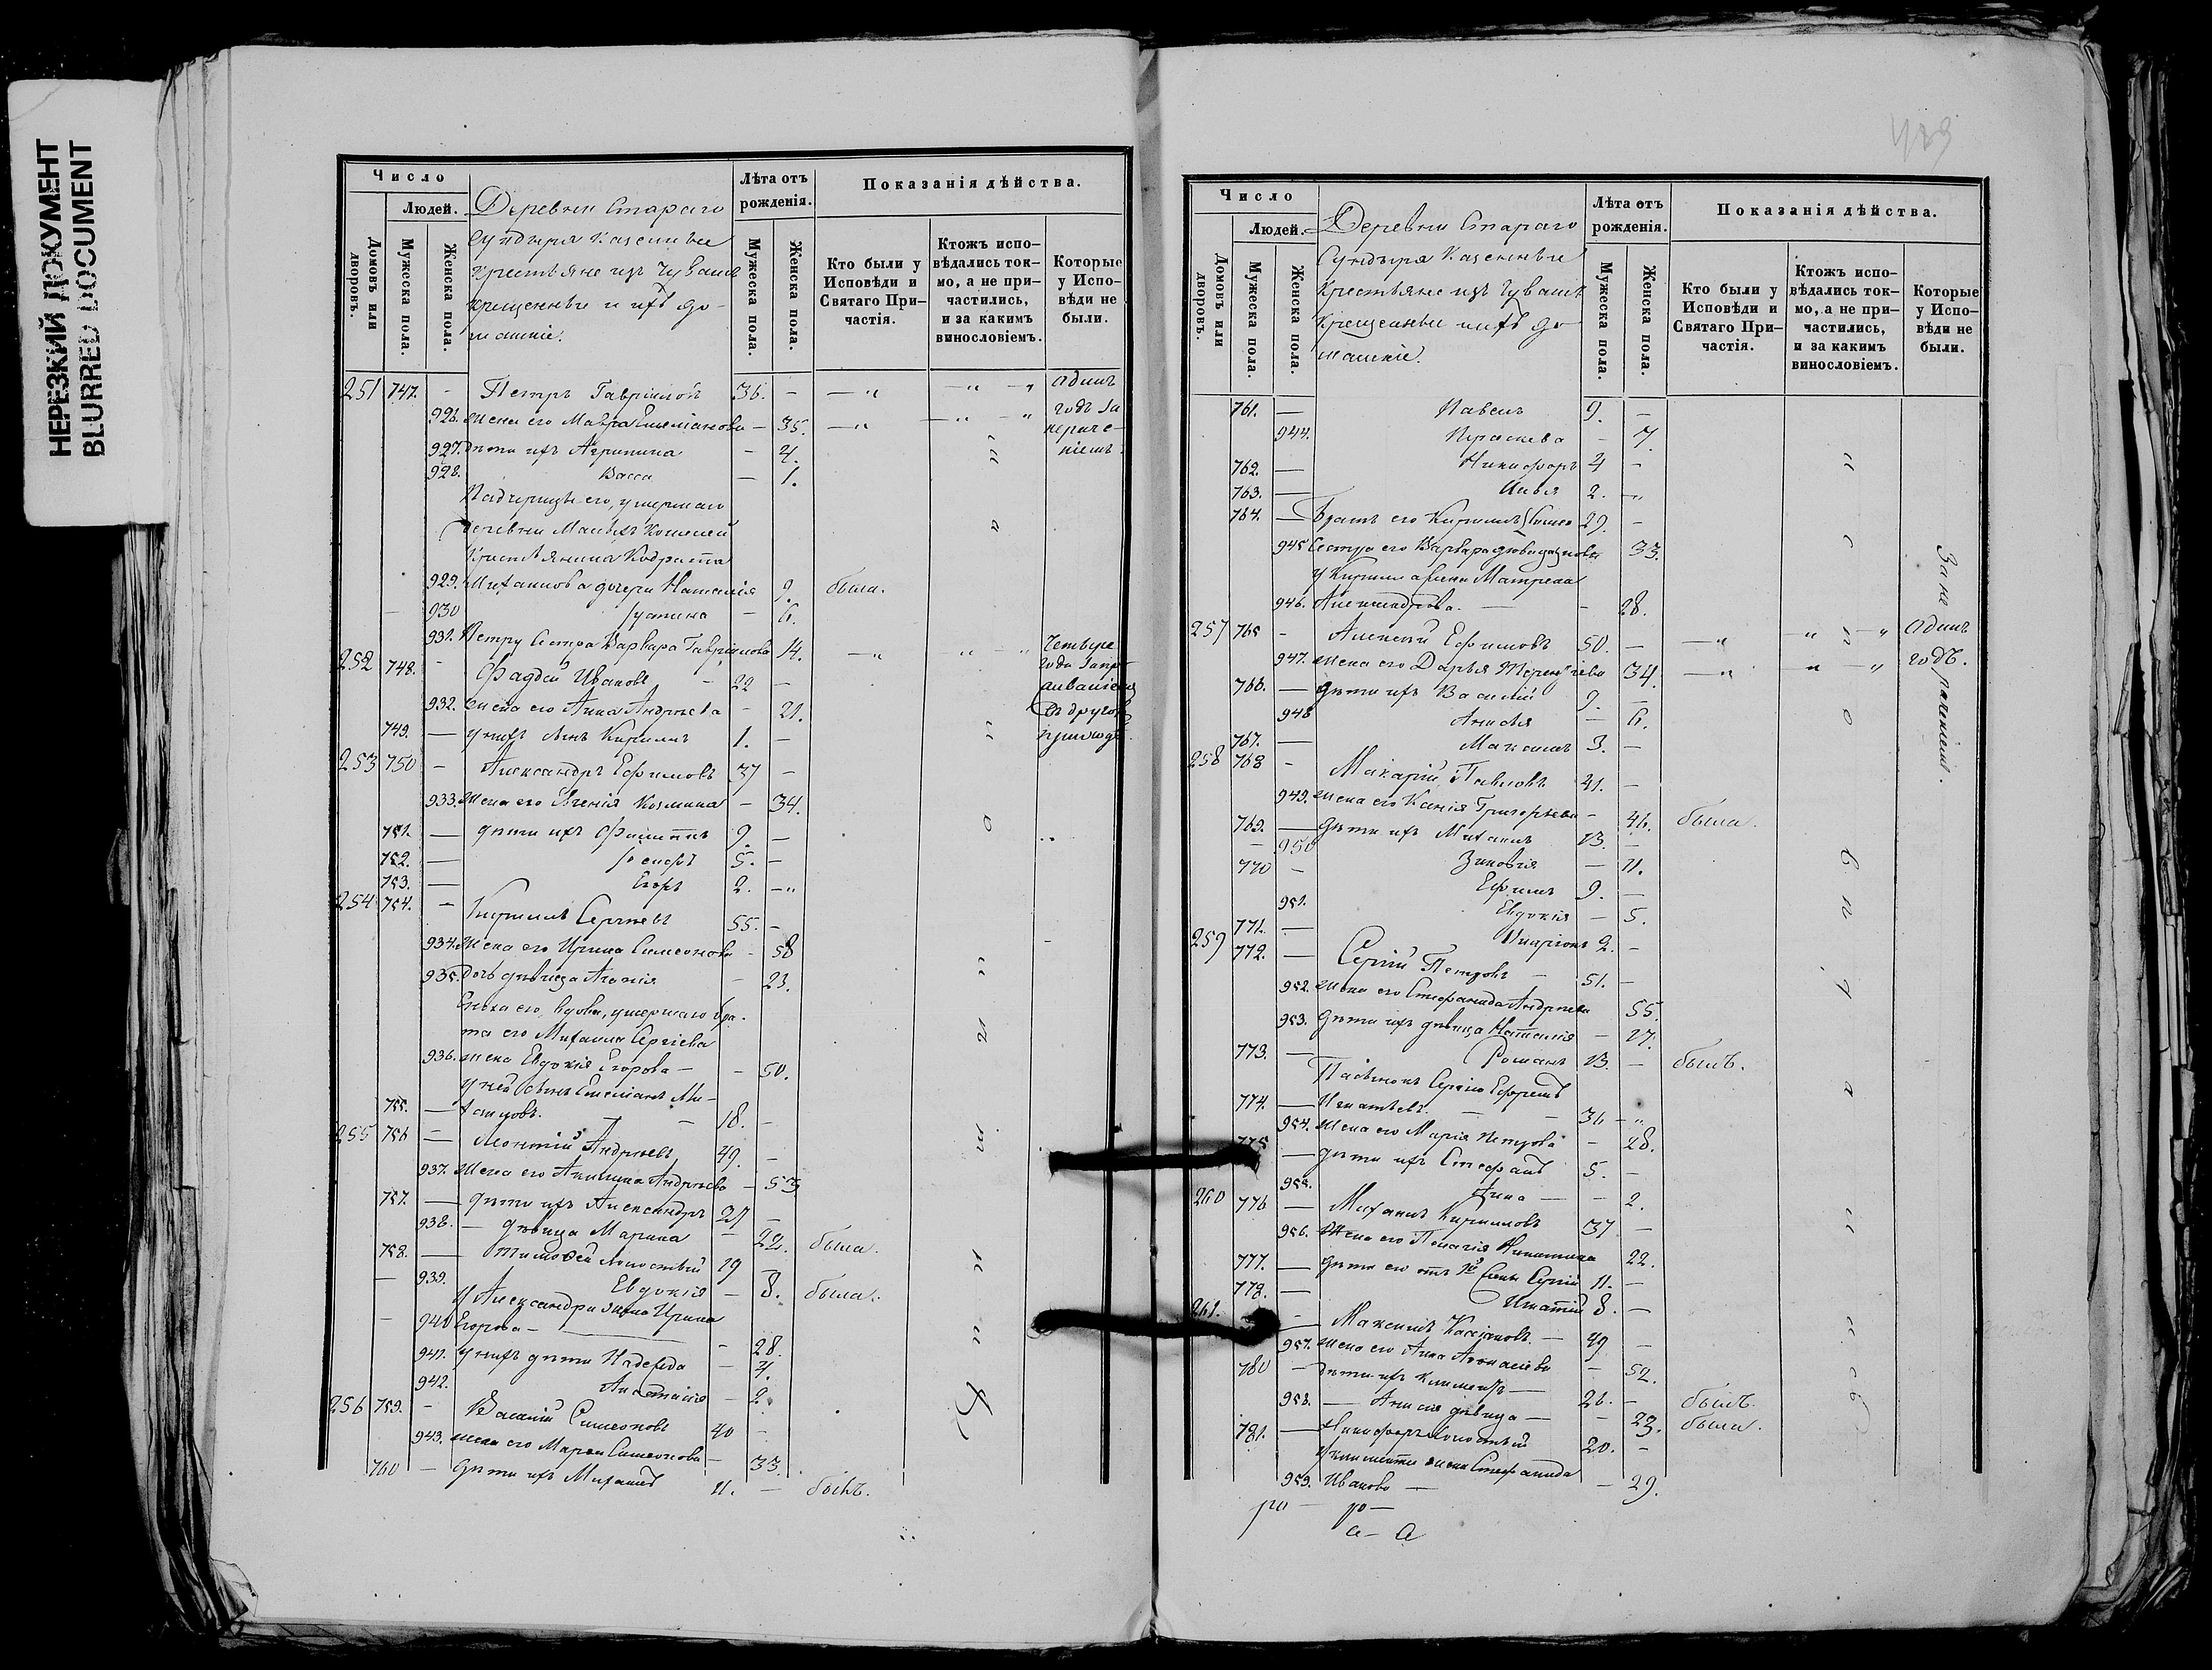 НЕРЕЗКИЙ ДОКУМЕНТ
BLURRED DOCUMENT
Число
Людей.
Домовъ или дворовъ.
Мужеска пола.
Женска пола.
Деревни Стараго
Сундыря Казенные
Крестьяне изъ Чувашъ
крещенные и ихъ до-
машніе.
Лѣта отъ рожденія.
Мужеска пола.
Женска пола.
Показанія дѣйства.
Кто были у Исповѣди и Святаго При-частія.
Ктожъ испо-вѣдались ток-мо, а не при-частились, и за какимъ винословіемъ.
Которые у Испо-вѣди не были.
251 747. - Петръ Гавріиловъ 36. - один
926. Жена его Мавра Емеліанова - 35. годъ за
нераче-
927. Дѣти ихъ Агрипина - 4. ніемъ.
928. Васса - 1.
Падчерицы его, умершаго
деревни Малыхъ Кошелей
Крестьянина Кодрата
929. Михаилова дочери Наталія 9. была.
930 Іустина - 6.
931. Петру Сестра Варвара Гавріилова 14.
252 748. - Фадей Ивановъ - 22 - Четыре года
932. Жена его Анна Андреева - 21. въ другом
749. — у нихъ сынъ Кириллъ 1. - приходѣ.
253 750 - Александръ Ефимовъ 37 -
933. Жена его Евгенія Козмина - 34.
751. — дѣти ихъ Филиппъ 9. -
752. — 5. -
753. — Егоръ 2. -
254 754. - Кириллъ Сергѣевъ 55. -
934. Жена его Ирина Симеонова - 58
935. Дочь дѣвица Агафія - 23.
его, вдова, умершаго бра-
та его Михаила Сергіева
936. жена Евдокія Егорова - - 50.
у ней сынъ Емеліанъ Ми-
755. — хаиловъ. - 18. -
255 756 — Леонтій Андреевъ 49. -
937. Жена его Акилина Андреева - 53
757. — дѣти ихъ Александръ 27 -
938. — дѣвица Марина - 22. была.
758. — Тимофей холостый 19 -
939. Евдокія - 8. была.
У Александра жена Ирина
940 Егорова - - 28.
941. у нихъ дѣти Надежда - 4.
942. Анастасія - 2.
256 759. - Василій Симеоновъ 40 -
943. жена его Марфа Симеонова - 33.
760 - дѣти ихъ Михаилъ 11. - былъ.
Число
Людей.
Домовъ или дворовъ.
Мужеска пола.
Женска пола.
Деревни Стараго
Сундыря Казенные
Крестьяне изъ Чувашъ
Крещенные и ихъ до-
машніе.
Лѣта отъ рожденія.
Мужеска пола.
Женска пола.
Показанія дѣйства.
Кто были у Исповѣди и Святаго При-частія.
Ктожъ испо-вѣдались ток-мо, а не при-частились, и за какимъ винословіемъ.
Которые у Испо-вѣди не были.
761. — Павелъ 9. -
944. Праскева - 7.
762. — Никифоръ 4 -
763. — Илья 2. -
764. — Братъ его Кириллъ 29. -
945 Сестра его Варвара 33.
у Кирилла жена Матрена
946. Александрова. — - 28.
257 765 - Алексей Ефимовъ 50. - один
947. жена его Дарья Терентіева 34. годъ.
За не раченіемъ.
766. — дѣти ихъ Василій 9. -
948 Анисія - 6.
767. — Максимъ 3. -
258 768 - Макарій Павловъ 41. -
949. Жена его Ксенія Григорьева - 46. была.
769. — дѣти ихъ Михаилъ 13. -
950 Зиновія - 11.
770 - Ефимъ 9. -
951. Евдокія - 5.
771. — Иларіонъ 2. -
259 772. — Сергій Петровъ - 51. -
952. жена его Стефанида Андреева 55.
953. Дѣти ихъ дѣвица Наталія - 27.
773. — Романъ 13. - былъ.
Пасынокъ Сергію Ефремъ
774. — Игнатьевъ. — - 36 -
954. Жена его Марія Петрова - 28.
775 — дѣти ихъ Стефанъ 5. -
955. Анна — - 2.
260 776 — Михаилъ Кирилловъ 37 -
956. Жена его Пелагія Никитина 22.
777. — Дѣти его отъ 1й жены Сергій 11. -
778. — Игнатій 8. -
261. — Максимъ Касіановъ - 49 -
957. Жена его Анна Афанасіева - 52.
780 - дѣти ихъ Климентъ — 26. - былъ.
958. — Анисія дѣвица — - 23. была.
781. — Никифоръ холостый 20. -
у Климента жена Стефанида
959. Иванова — - 29.